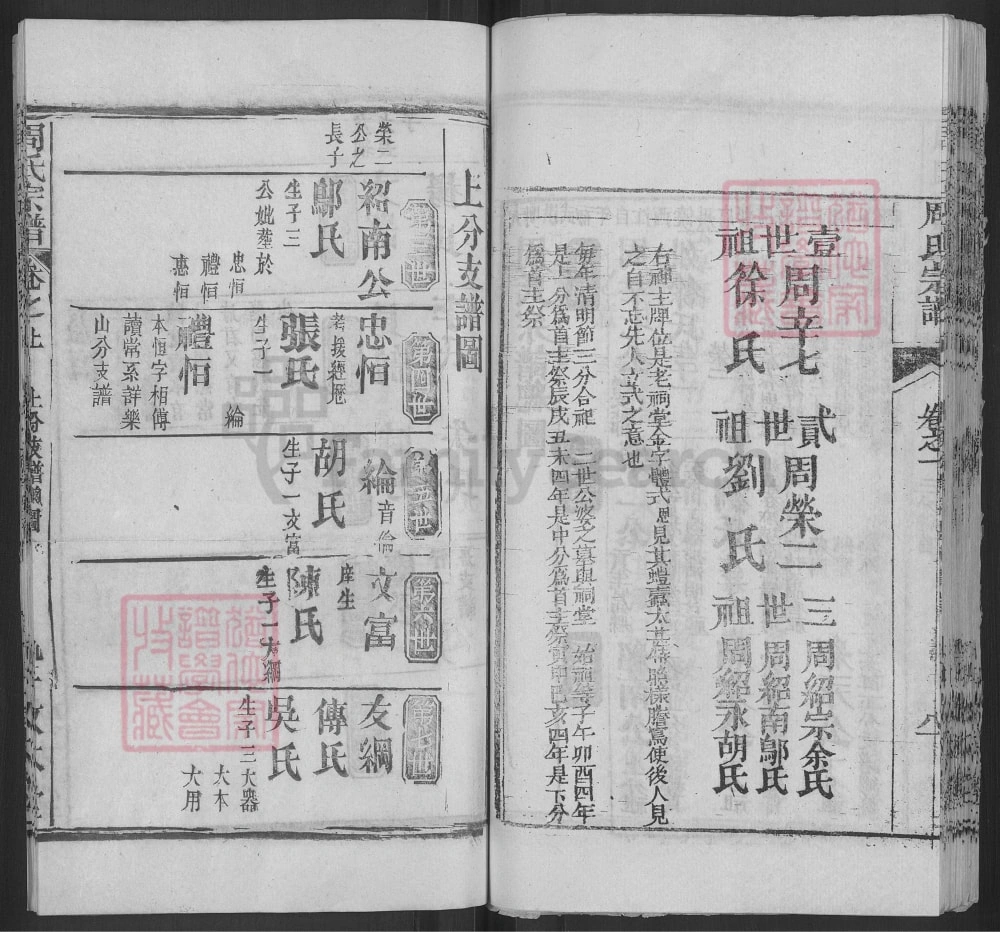 周氏宗譜
卷之一
壹世祖
周辛七
徐氏
貳世祖
周榮二
劉氏
三世祖
周紹宗余氏
周紹南鄔氏
周紹永胡氏
右神主牌位是老祠堂金字體式恩見其螘蠹太甚備照樣謄寫使後人見
之自不忘先人立式之意也
每年清明節三分合祀 二世公婆之墓與祠堂 始祖等子午卯酉四年
是上分為首主祭辰戌丑未四年是中分為首主祭寅申巳亥四年是下分
為首主祭
上分支譜圖
第三世
榮二公之長子
紹南公
鄔氏
生子三
忠恒
禮恒
惠恒
公妣塟於
第四世
忠恒
老援經歷
張氏
生子一
綸
禮恒
本恒字相傳
讀常系詳樂
山分支譜
第五世
綸
音倫
胡氏
生子一文富
第六世
文富
庠生
陳氏
生子一友綱
第七世
友綱
傳氏
吳氏
生子三大器
大本
大用
周氏宗譜
卷之上
FamilySearch